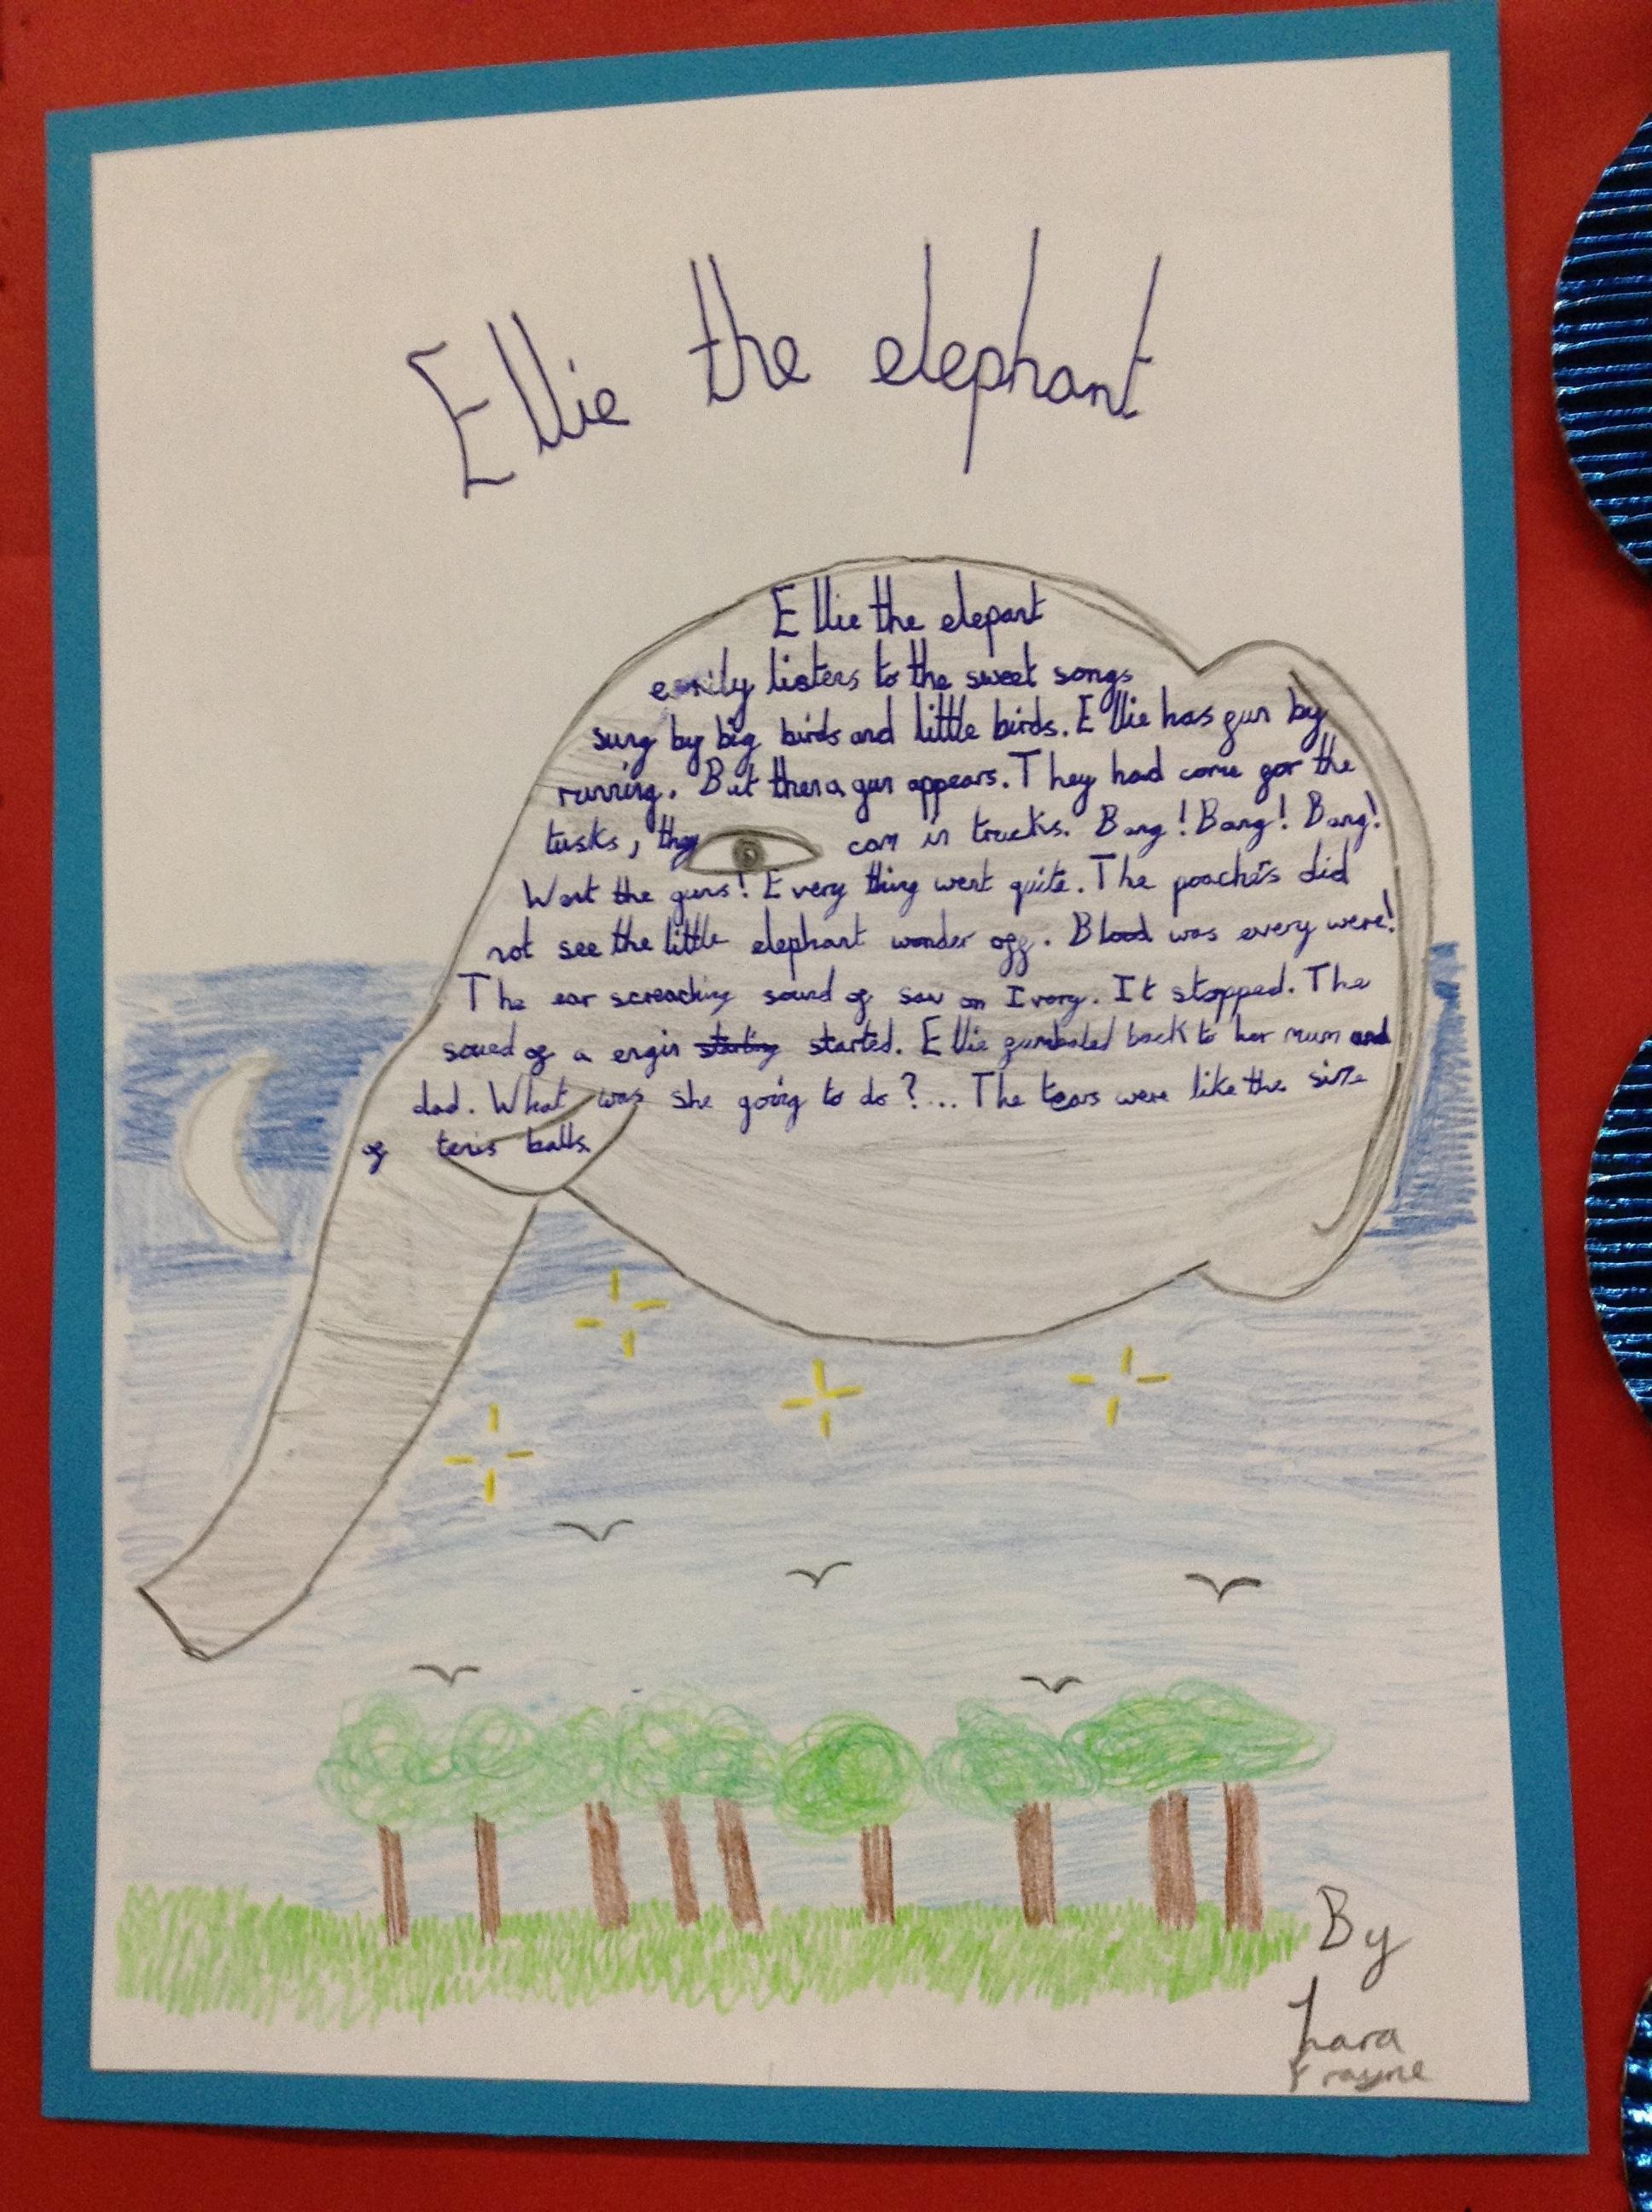 Ellie the elephant
Ellie the elepant
easily listens to the sweet songs
sung by big birds and little birds. Ellie has fun by
running. But then a gun appears. They had come for the
tusks, they com in trucks. Bang! Bang! Bang!
Went the guns! Every thing went quite. The poachers did
not see the little elephant wonder off. Blood was every were!
The ear screaching sound of saw on Ivory. It stopped. The
soued of a engin starting started. Ellie fumbaled back to her mum and
dad. What was she going to do?... The tears were like the size
of tenis balls.
By
Lara
Frayne